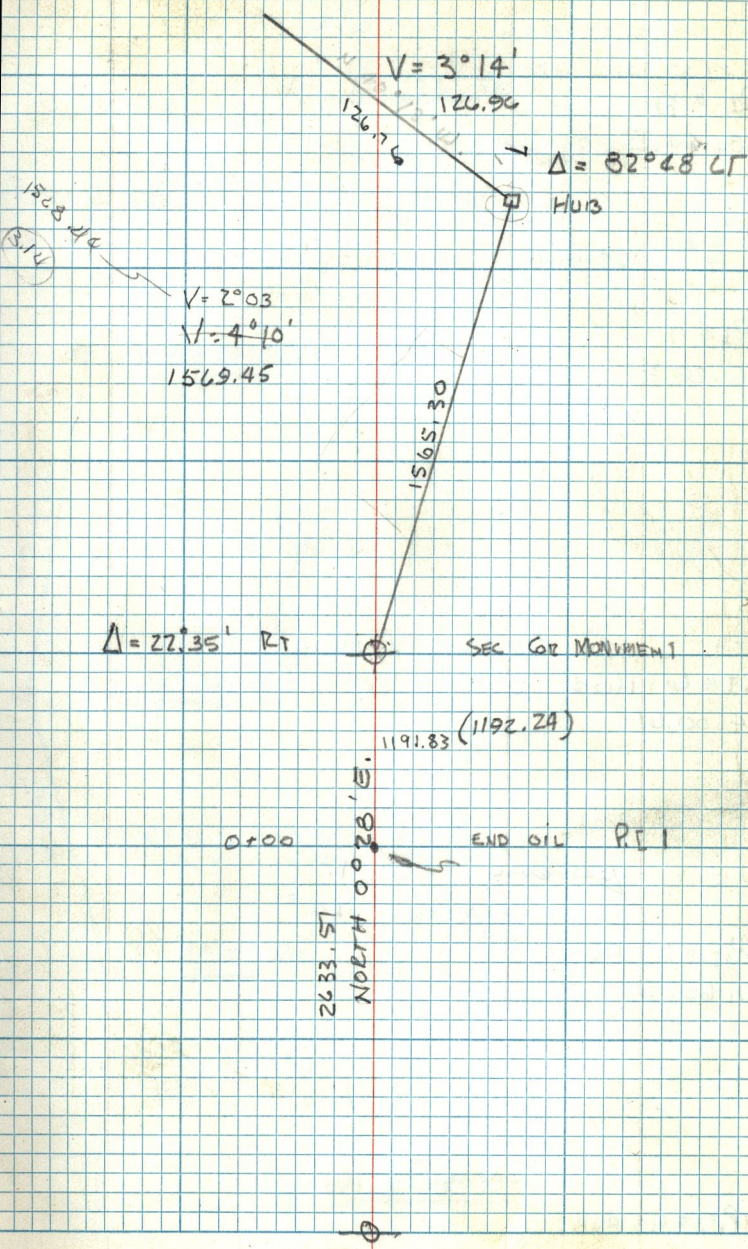 V = 3°14'
126.96
126.76
Δ = 82°48' LT
HUB
1568.44
3.14
V = 2°03
V = 4°10'
1569.45
1565.30
Δ = 22°35' RT
SEC COR MONUMENT
1191.83 (1192.24)
0+00
END OIL P.I 1
NORTH 0°28' E.
2633.51